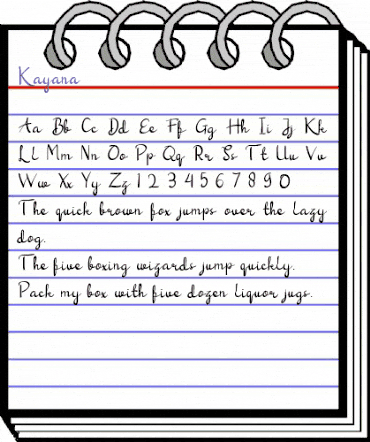 Kayana
Aa Bb Cc Dd Ee Ff Gg Hh Ii Jj Kk
Ll Mm Nn Oo Pp Qq Rr Ss Tt Uu Vv
Ww Xx Yy Zz 1 2 3 4 5 6 7 8 9 0
The quick brown fox jumps over the lazy
dog.
The five boxing wizards jump quickly.
Pack my box with five dozen liquor jugs.